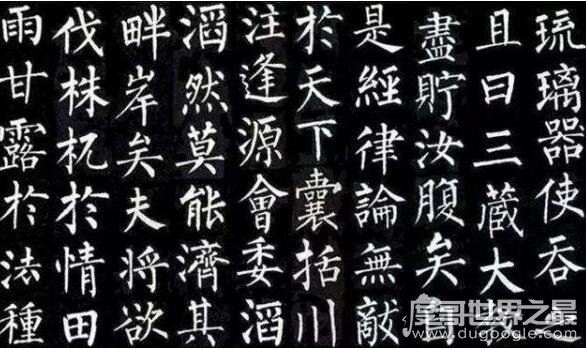 琉璃器使吞
且曰三藏大
盡貯汝腹矣自
是經律論無敵
於天下囊括川
注逢源會委滔
滔然莫能濟其
畔岸矣夫將欲
伐株杌於情田
雨甘露於法種
世界之最
www.dugoogle.com